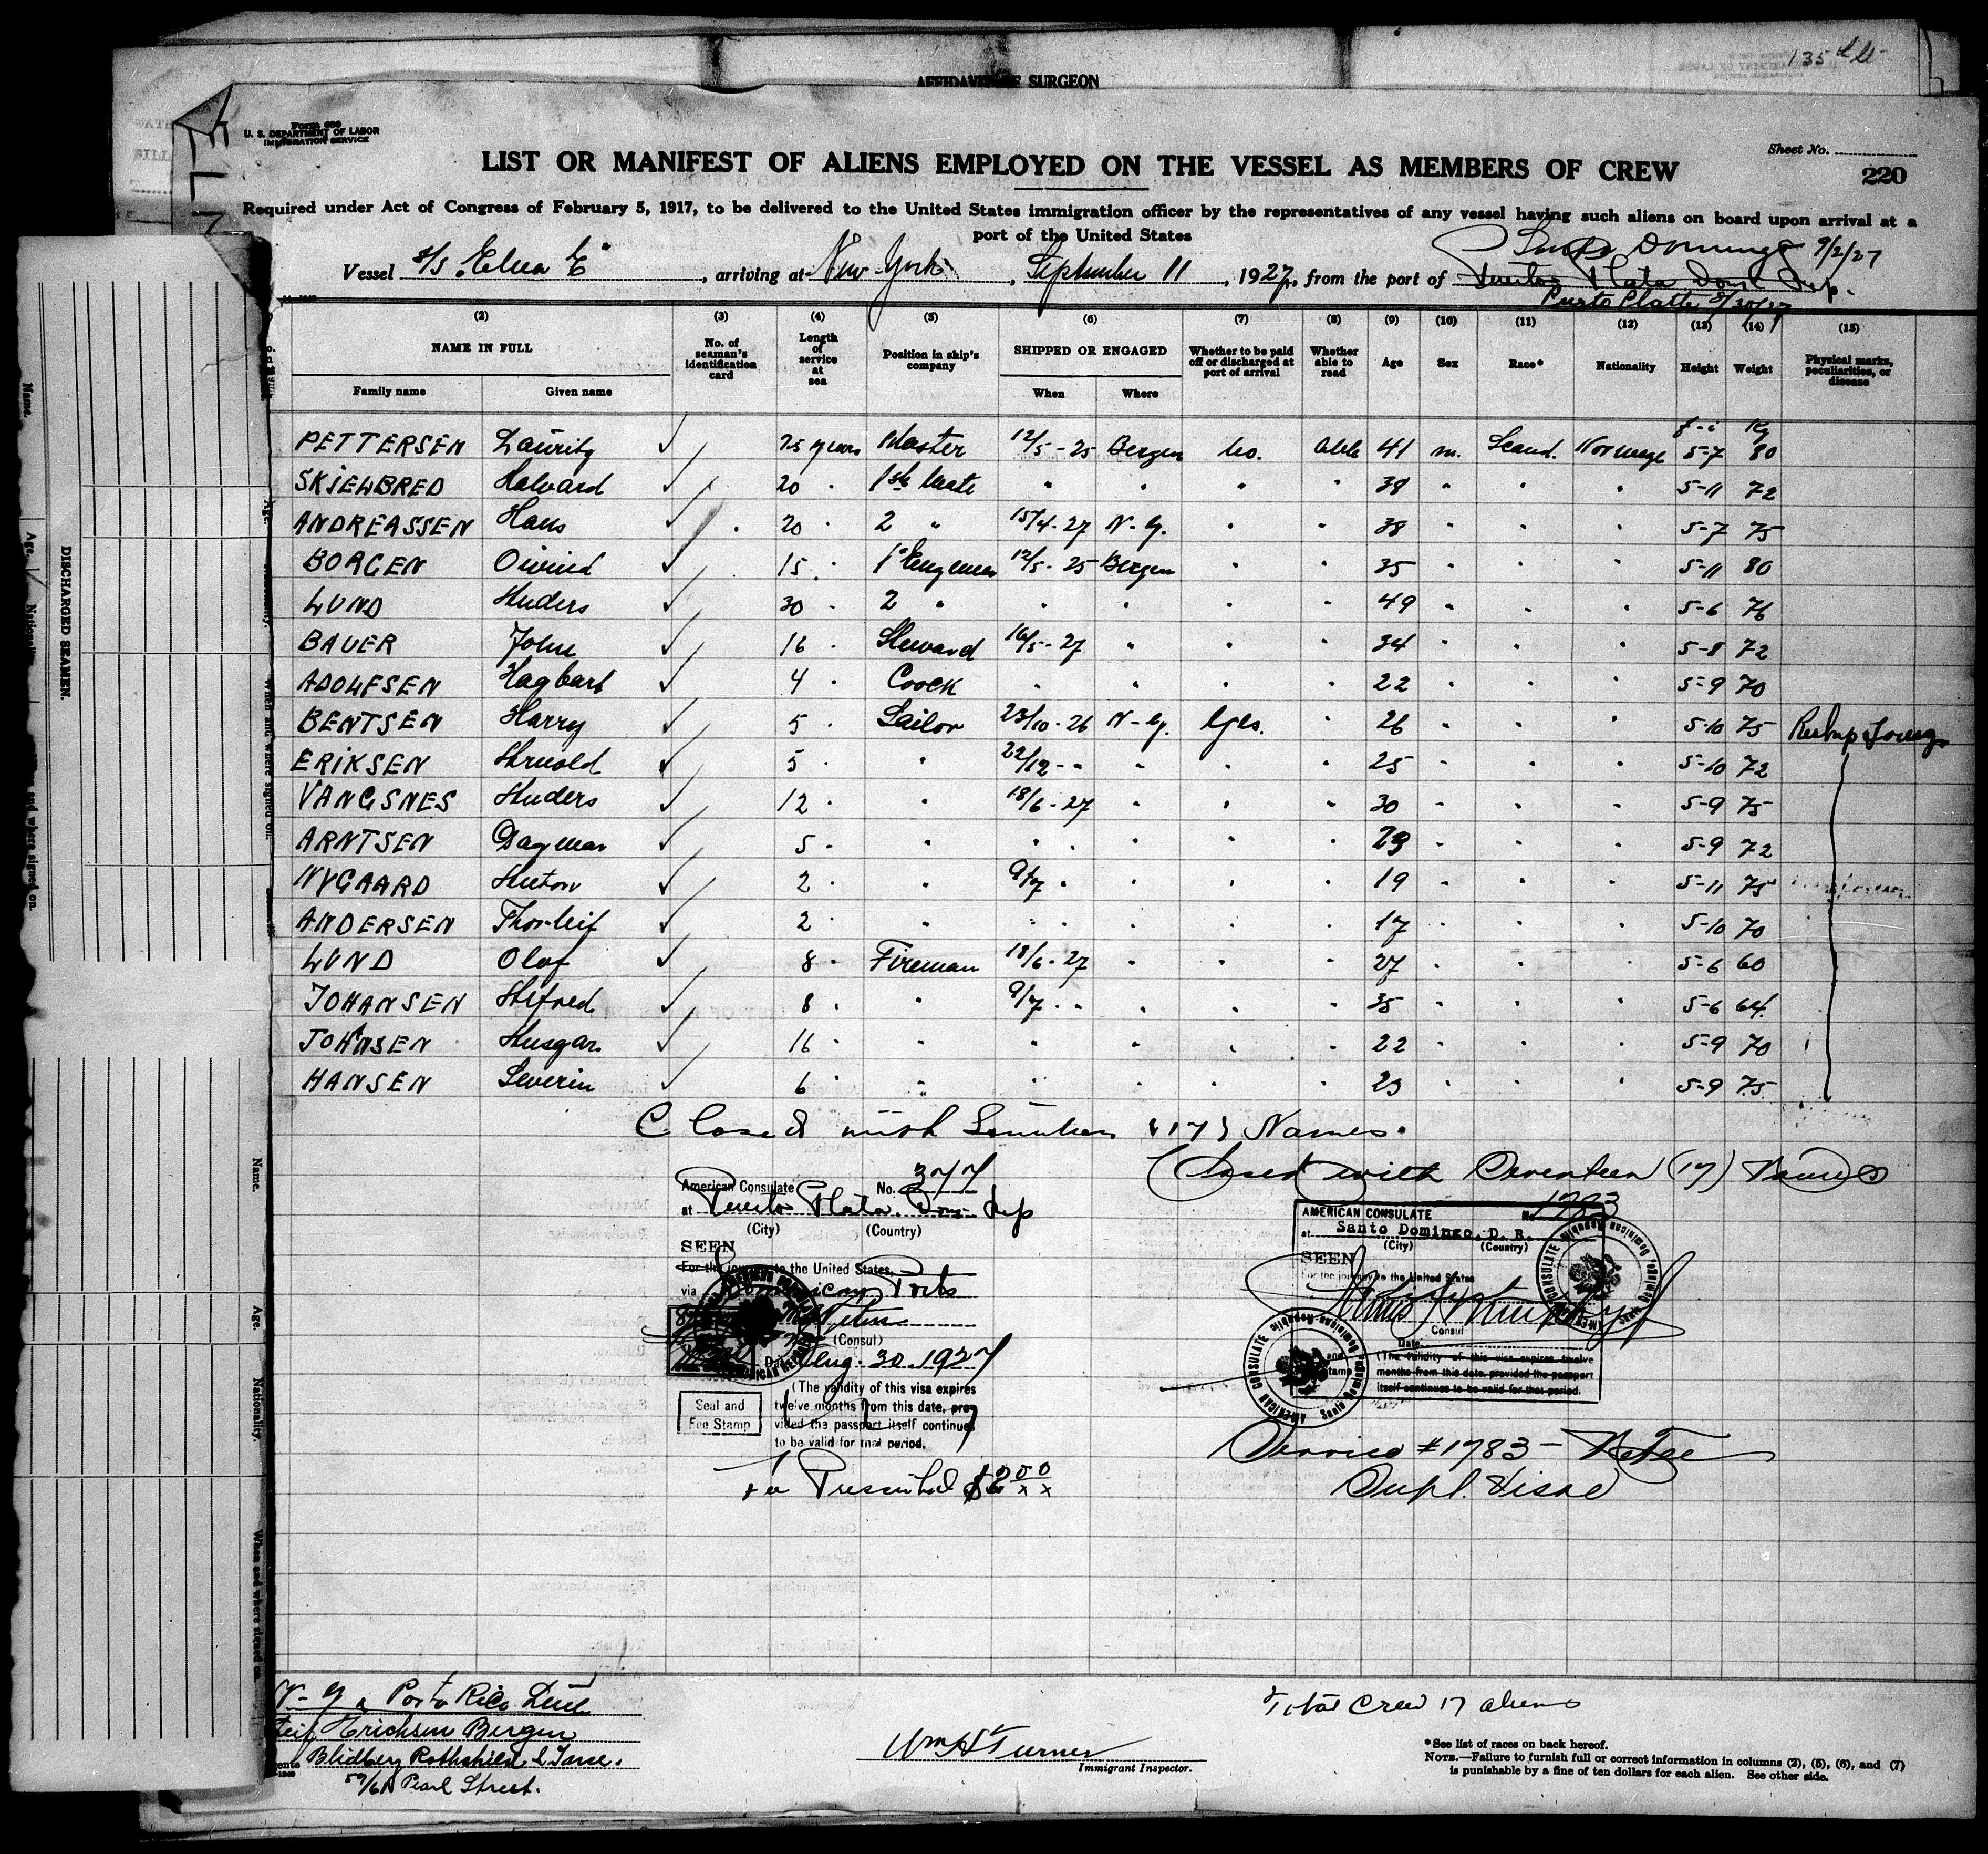 135
AFFIDAVIT OF SURGEON
Form 680
U. S. DEPARTMENT OF LABOR
IMMIGRATION SERVICE
Sheet No.
LIST OR MANIFEST OF ALIENS EMPLOYED ON THE VESSEL AS MEMBERS OF CREW
220
Required under Act of Congress of February 5, 1917, to be delivered to the United States immigration officer by the representatives of any vessel having such aliens on board upon arrival at a
port of the United States
Santo Domingo 9/2/27
Vessel S/S "Elna E", arriving at New York, September 11, 1927, from the port of Puerto Plata Dom Rep.
Puerto Platte 8/30/27
(2) (3) (4) (5) (6) (7) (8) (9) (10) (11) (12) (13) (14) (15)
NAME IN FULL
Family name Given name
No. of seaman's identification card
Length of service at sea
Position in ship's company
SHIPPED OR ENGAGED
When Where
Whether to be paid off or discharged at port of arrival
Whether able to read
Age
Sex
Race*
Nationality
Height
Weight
Physical marks, peculiarities, or disease
f-i Kg
PETTERSEN Lauritz ✓ 25 years Master 12/5-25 Bergen No. Able 41 m. Scand. Norwege 5-7 80
SKJELBRED Halvard ✓ 20 " 1st Mate " " " " 38 " " " 5-11 72
ANDREASSEN Hans ✓ 20 " 2 " 15/4-27 N-Y. " " 38 " " " 5-7 75
BORGEN Oivind ✓ 15 " 1 Engineer 12/5-25 Bergen " " 35 " " " 5-11 80
LUND Anders ✓ 30 " 2 " " " " " 49 " " " 5-6 76
BAUER John ✓ 16 " Steward 16/5-27 " " " 34 " " " 5-8 72
ADOLFSEN Hagbart ✓ 4 " Coock " " " " 22 " " " 5-9 70
BENTSEN Harry ✓ 5 " Sailor 23/10-26 N-Y. Yes. " 26 " " " 5-10 75
ERIKSEN Arnold ✓ 5 " " 22/12-" " " " 25 " " " 5-10 72
VANGSNES Anders ✓ 12 " " 18/6-27 " " " 30 " " " 5-9 75
ARNTSEN Dagmar ✓ 5 " " " " " " 29 " " " 5-9 72
NYGAARD Anton ✓ 2 " " 9/7 " " " " 19 " " " 5-11 75
ANDERSEN Thorleif ✓ 2 " " " " " " 17 " " " 5-10 70
LUND Olaf ✓ 8 " Fireman 18/6-27 " " " 27 " " " 5-6 60
JOHANSEN Alfred ✓ 8 " " 9/7 " " " " 35 " " " 5-6 64
JOHNSEN Ansgar ✓ 16 " " " " " " 22 " " " 5-9 70
HANSEN Severin ✓ 6 " " " " " " 23 " " " 5-9 75
Closed with "17" Names.
Closed with Seventeen (17) Names
American Consulate No. 377
at Puerto Plata. Dom Rep
(City) (Country)
SEEN
For the journey to the United States,
via Dominican Ports
(Consul)
Date Aug. 30. 1927
(The validity of this visa expires
twelve months from this date, pro-
vided the passport itself continues
to be valid for that period.
Seal and
Fee Stamp
Prescribed $2.00
AMERICAN CONSULATE No 1783
at Santo Domingo, D. R.
(City) (Country)
SEEN
For the journey to the United States
Consul
Date
(The validity of this visa expires twelve
months from this date, provided the passport
itself continues to be valid for that period.
and
stamp
AMERICAN CONSULATE Santo Domingo, Dominican Republic
AMERICAN CONSULATE Santo Domingo, Dominican Republic
Service #1783 - No Fee
Dupl. Visae
N-Y & Porto Rico Line
Leif Erichsen Bergen
Blidberg Rothchild
Pearl Street.
Wm H Turner
Immigrant Inspector.
Total Crew 17 aliens
*See list of races on back hereof.
NOTE.—Failure to furnish full or correct information in columns (2), (5), (6), and (7)
is punishable by a fine of ten dollars for each alien. See other side.
DISCHARGED SEAMEN.
Name.
Age.
Nationality.
When and where signed on.
Name.
Age.
Nationality.
When and where signed on.